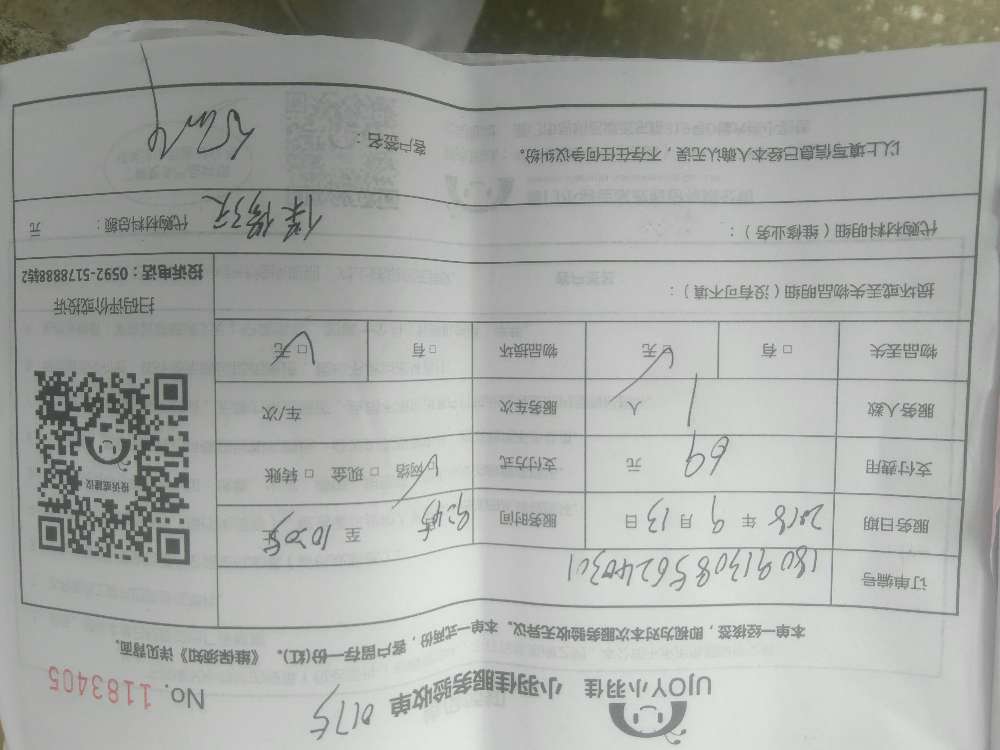 UJOY小羽佳 小羽佳服务验收单 0175
No. 1183405
本单一经核签，即视为对本次服务验收无异议。本单一式两份，客户留存一份(红)。《维保须知》详见背面。
订单编号 18091308562400301
服务日期 2018 年 9 月 13 日 服务时间 9:45 至 10:05
支付费用 69 元 支付方式 网络 □ 现金 □ 转账
服务人数 1 人 服务车次 车次
物品丢失 □ 有 □ 无 物品损坏 □ 有 □ 无
损坏或丢失物品明细（没有可不填）：
代购材料明细（维修业务）： 代购材料总额： 元
以上填写信息已经本人确认无误，不存在任何争议纠纷。 客户签名：
投诉或建议
扫码评价或投诉
投诉电话：0592-5178888转2